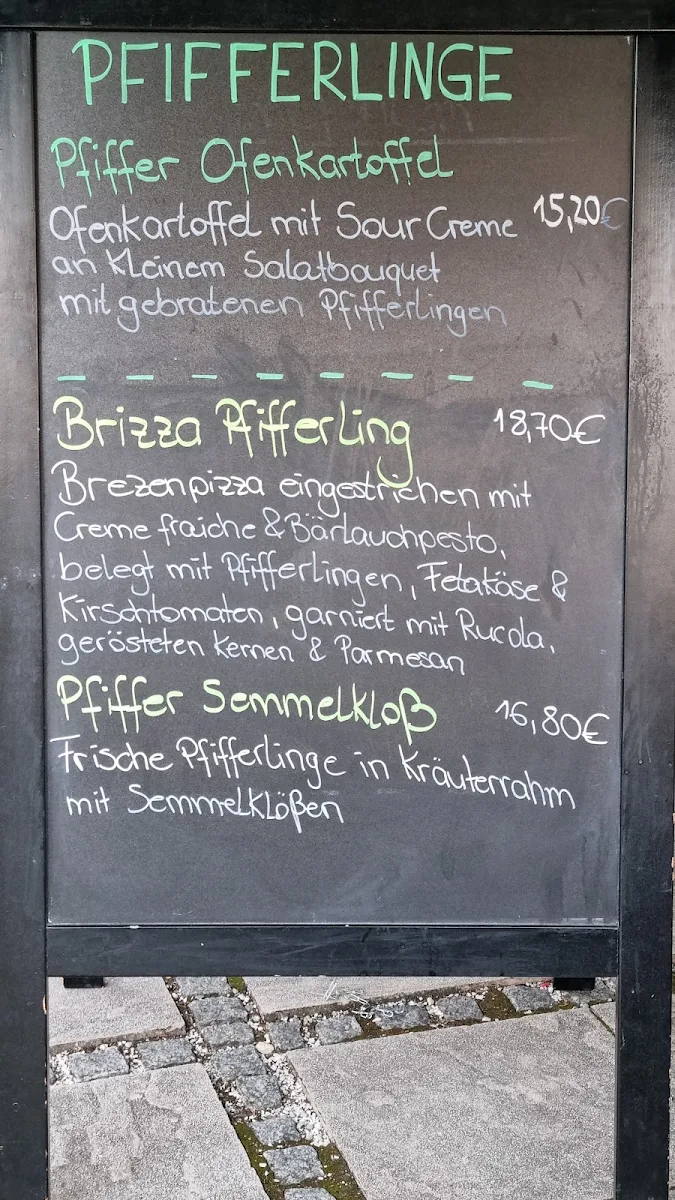 PFIFFERLINGE
Pfiffer Ofenkartoffel
Ofenkartoffel mit Sour Creme 15,20€
an kleinem Salatbouquet
mit gebratenen Pfifferlingen
Brizza Pfifferling 18,70€
Brezenpizza eingestrichen mit
Creme fraiche & Bärlauchpesto,
belegt mit Pfifferlingen, Fetakäse &
Kirschtomaten, garniert mit Rucola,
gerösteten Kernen & Parmesan
Pfiffer Semmelkloß 16,80€
Frische Pfifferlinge in Kräuterrahm
mit Semmelklößen